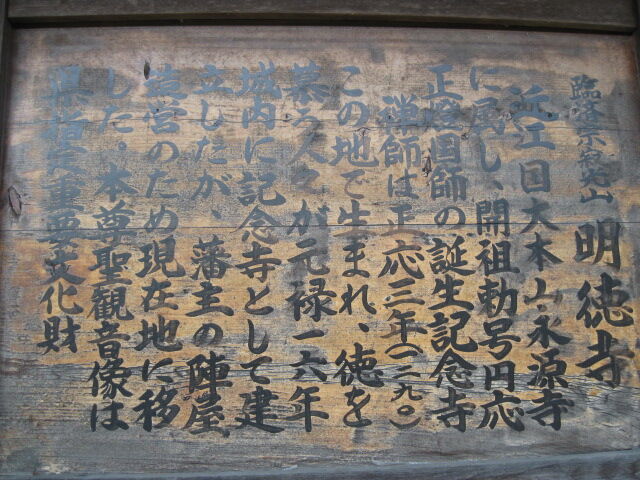 臨済宗 山 明徳寺
近江国大本山永源寺
に属し、開祖勅号円応
正燈国師の誕生記念寺
禅師は正応三年(一二九〇)
この地で生まれ、徳を
慕う人々が元禄一六年
城内に記念寺として建
立したが、藩主の陣屋
造営のため現在地に移
した。本尊聖観音像は
県指定重要文化財